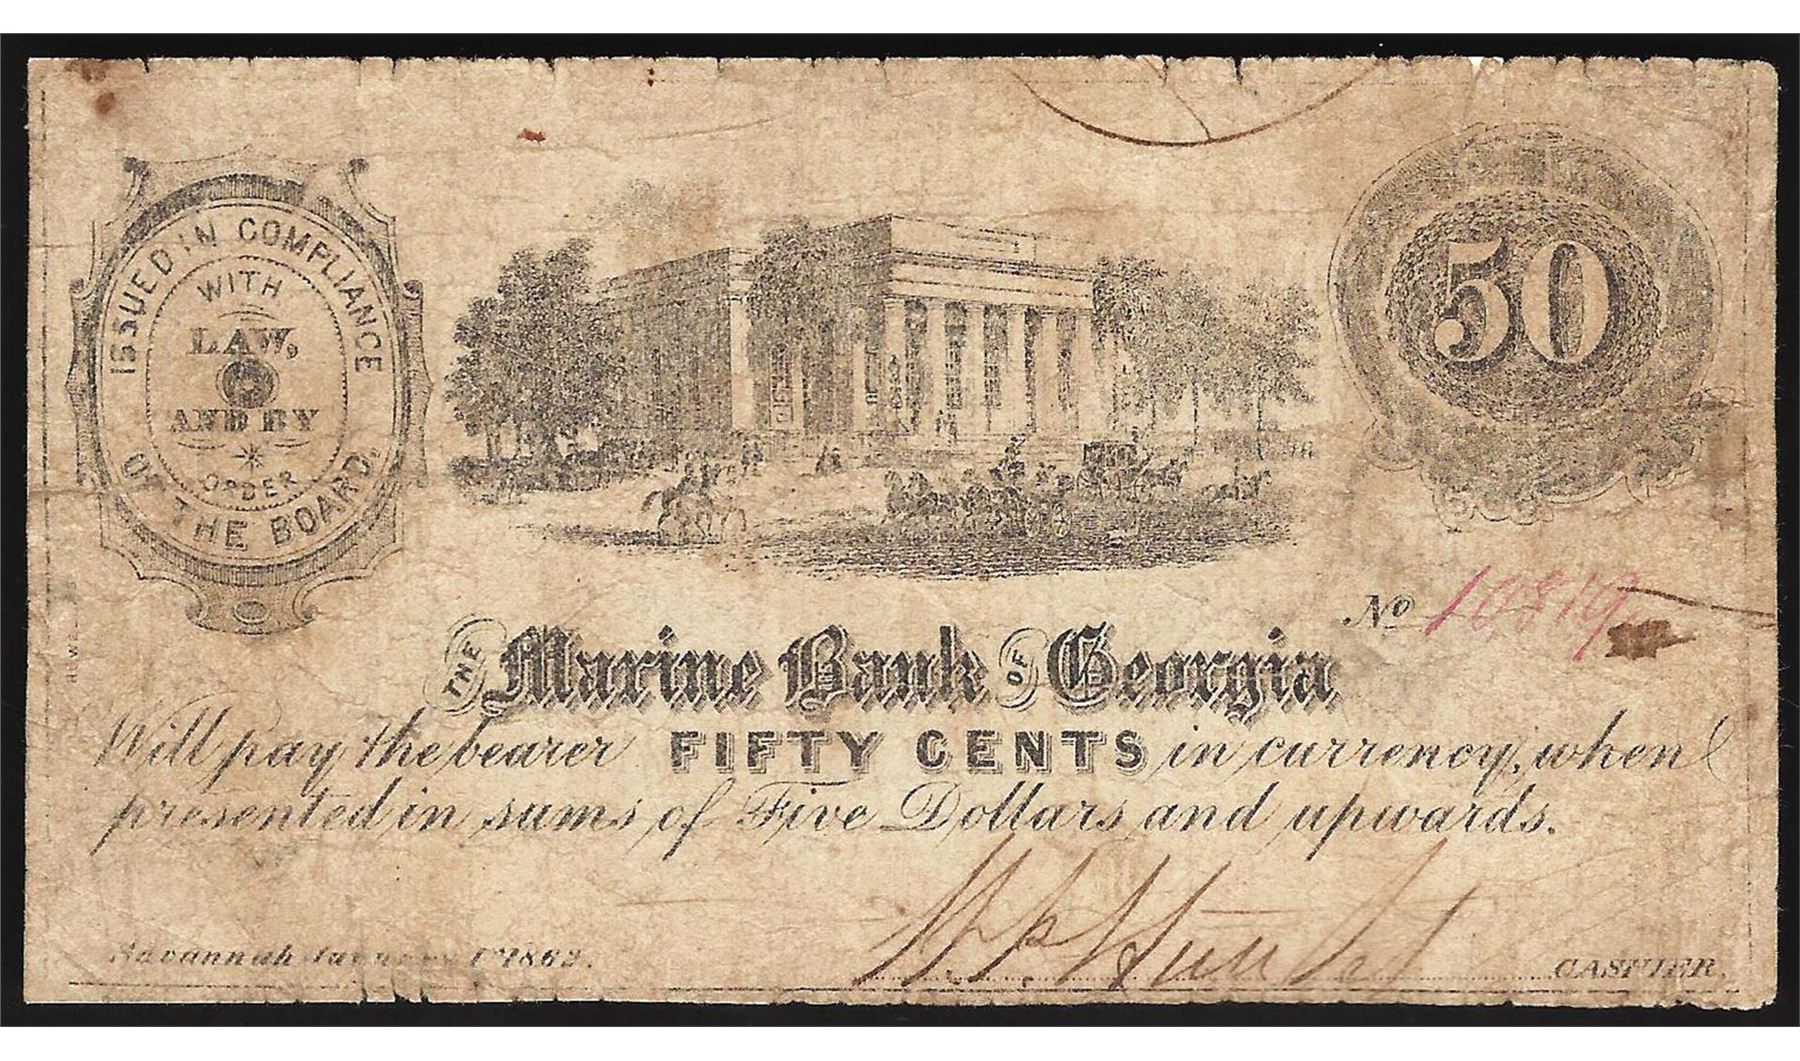 ISSUED IN COMPLIANCE
WITH
LAW,
AND BY
ORDER
OF THE BOARD.
50
No 10819
THE Marine Bank OF Georgia
Will pay the bearer FIFTY CENTS in currency, when
presented in sums of Five Dollars and upwards.
Savannah January 1st 1862.
CASHIER.